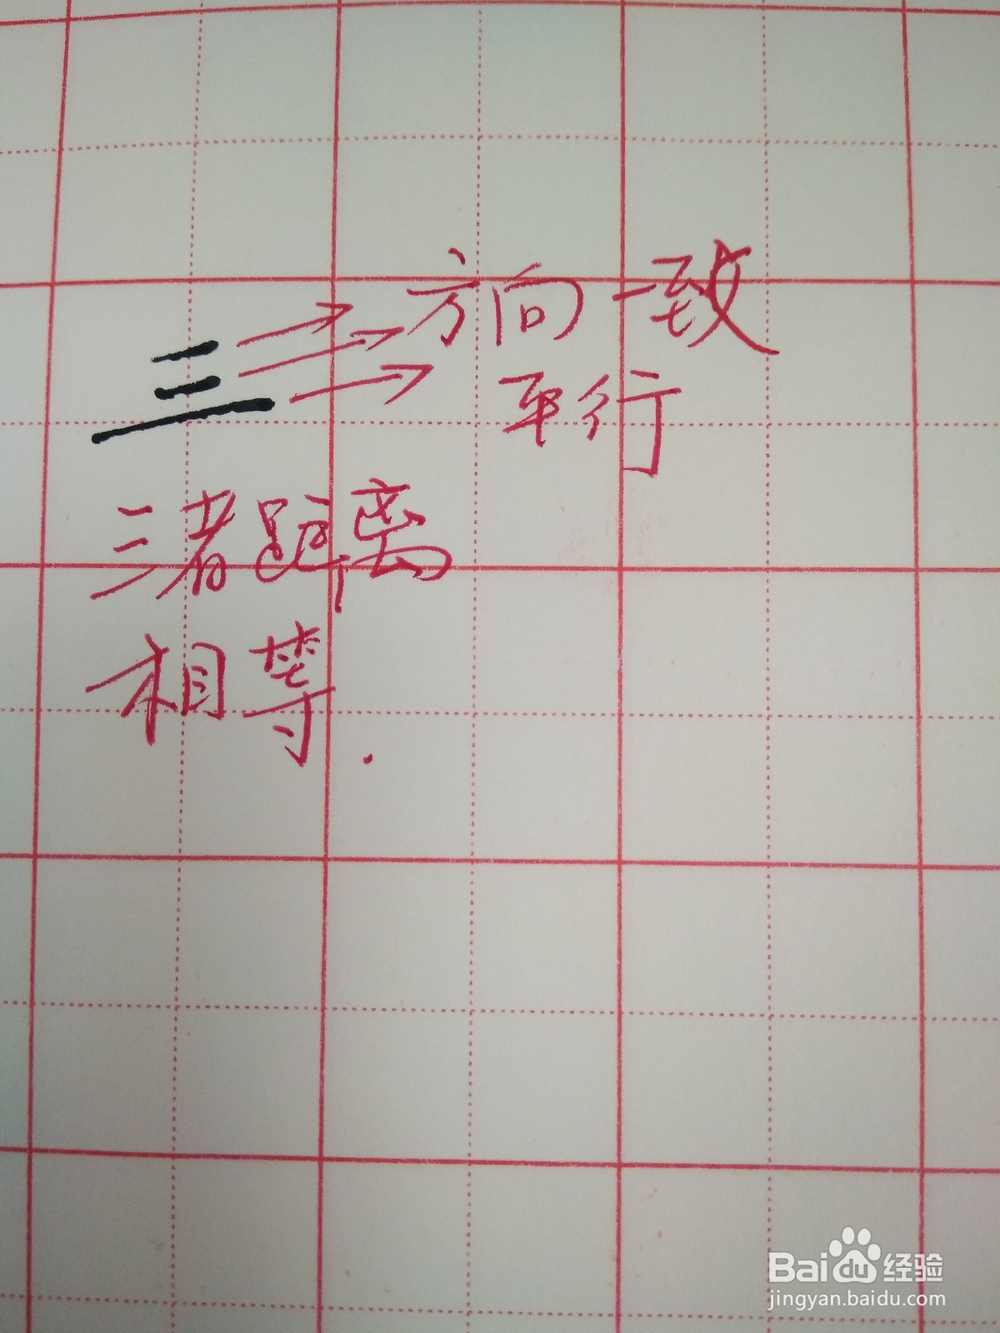 三
方向一致
平行
三者距离
相等.
Baidu经验
jingyan.baidu.com